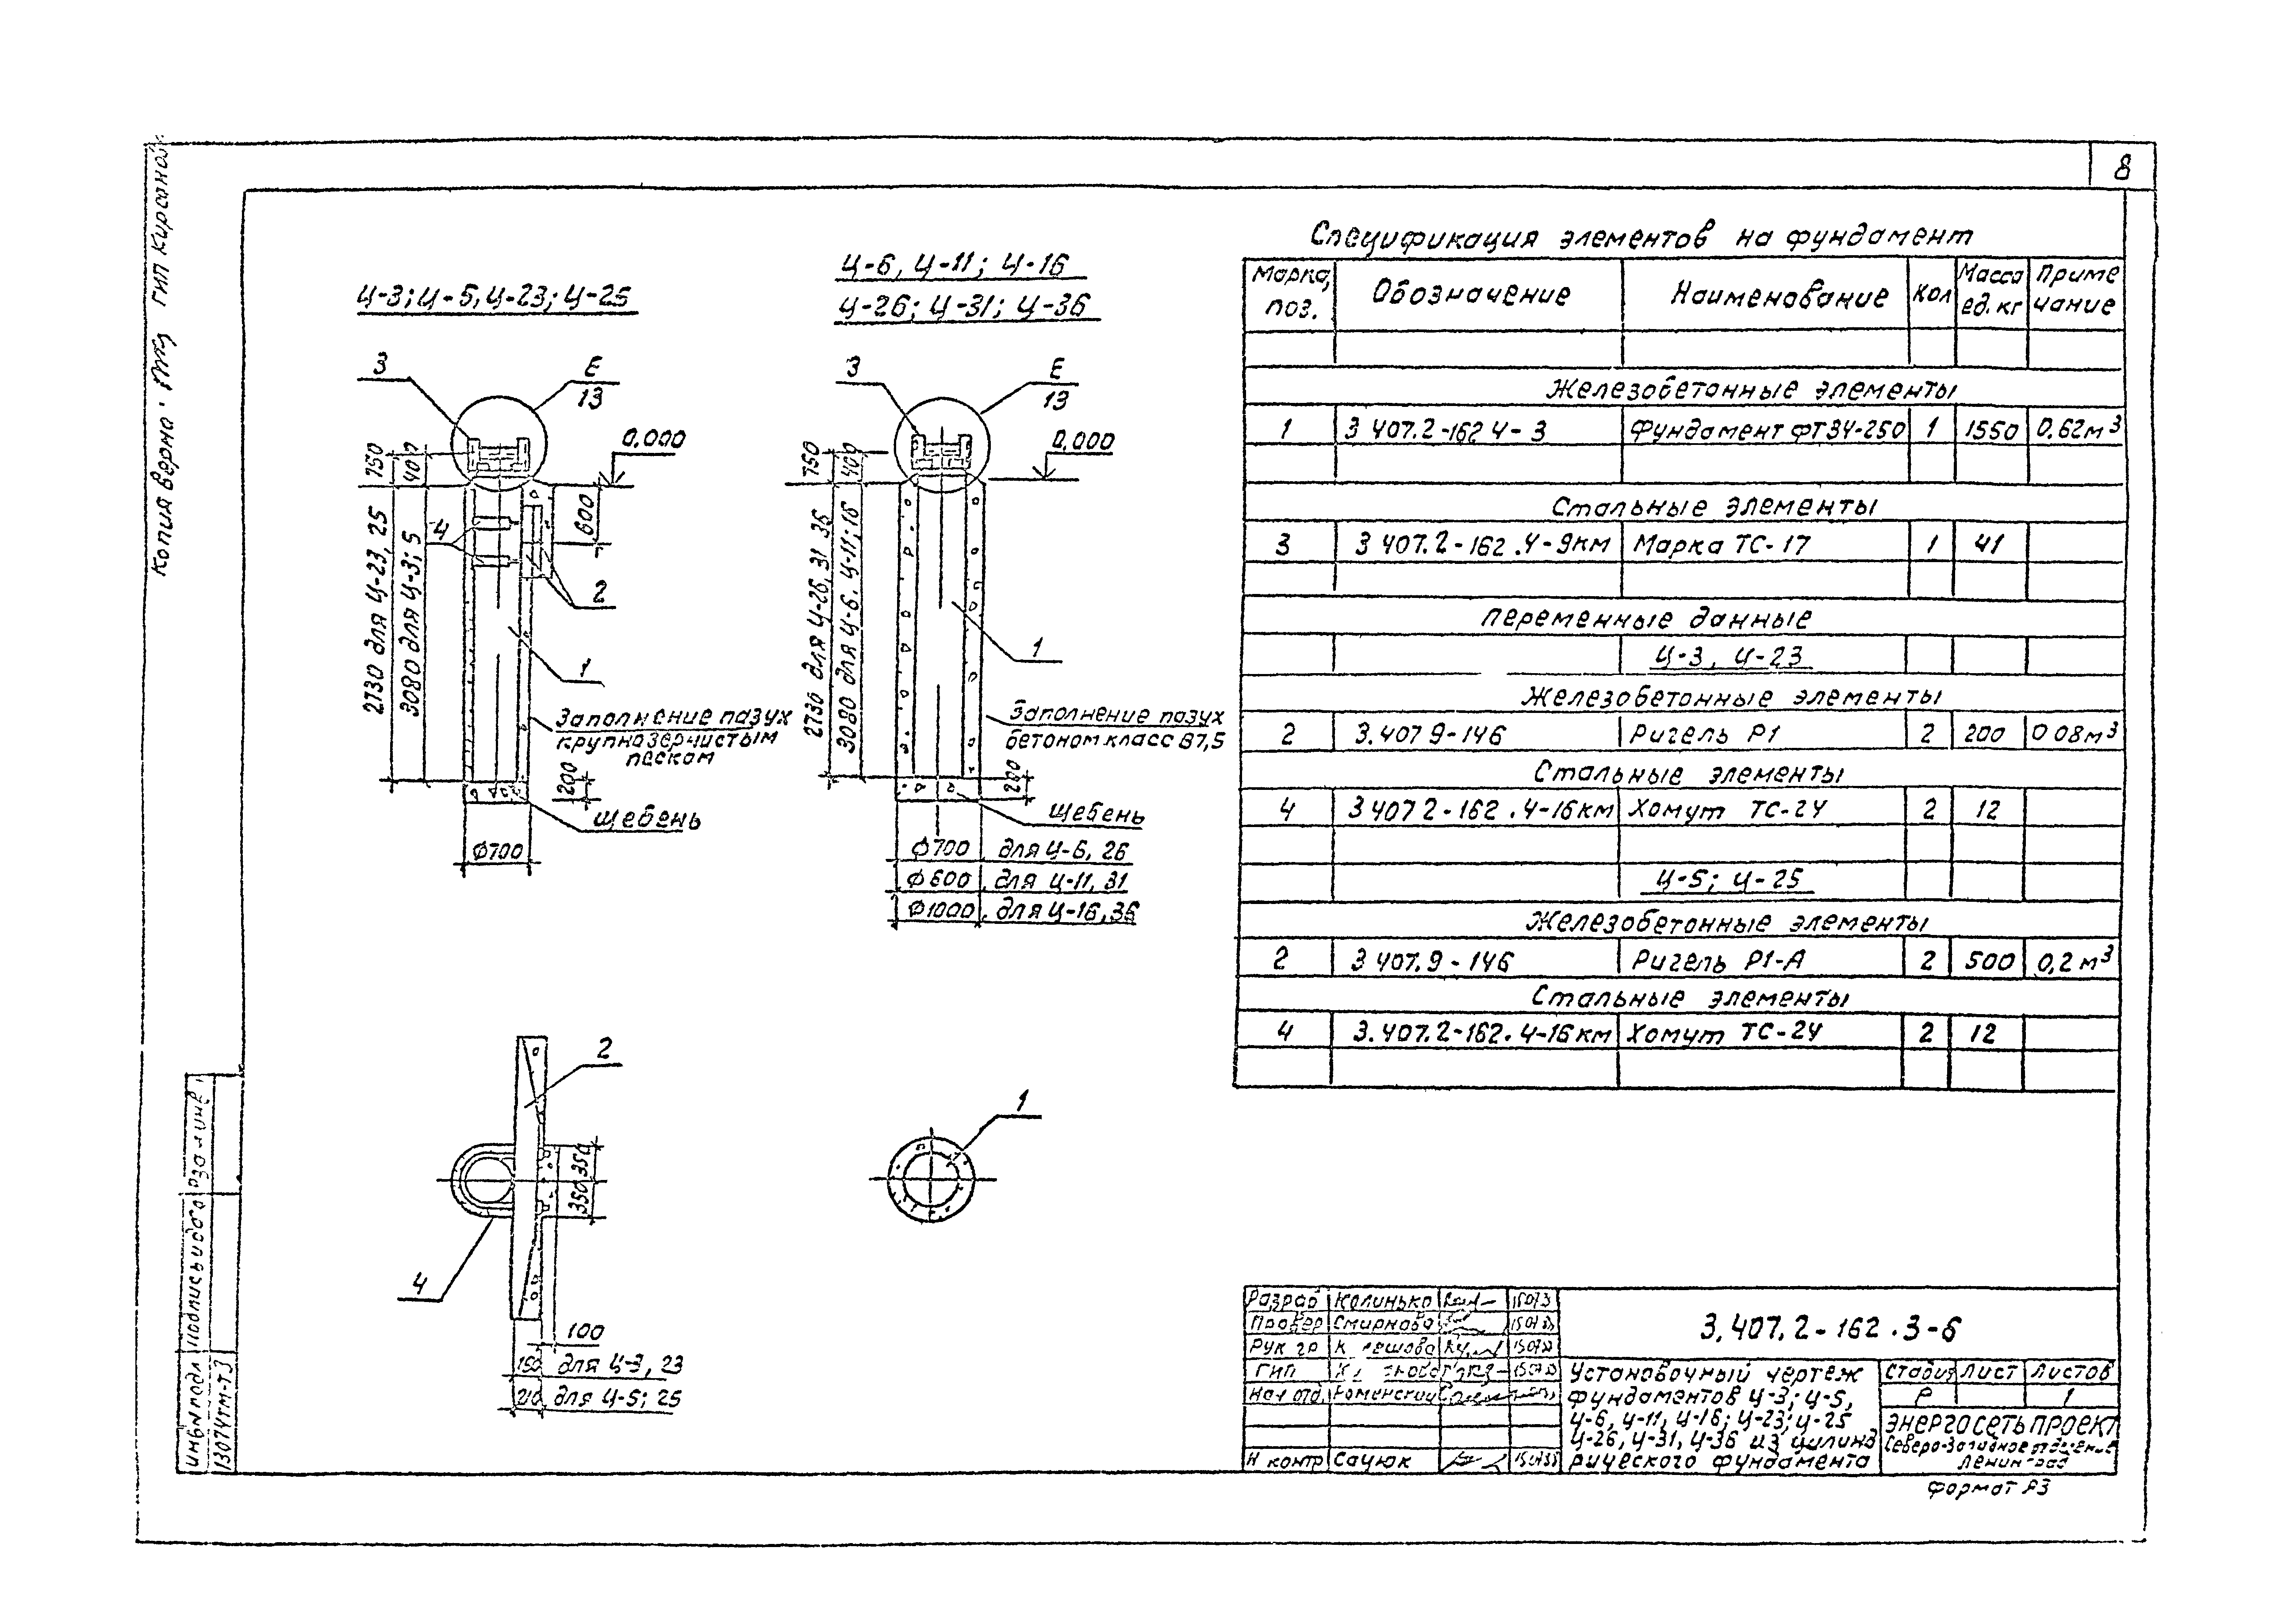 8
Копия верна
ГИП Кирсанов
Ц-3; Ц-5, Ц-23; Ц-25
3
Е
13
0,000
750
400
600
4
2
1
2730 для Ц-23, 25
3080 для Ц-3; 5
Заполнение пазух
крупнозернистым
песком
200
щебень
Ф700
Ц-6, Ц-11; Ц-16
Ц-26; Ц-31; Ц-36
3
Е
13
0,000
750
400
2730 для Ц-26, 31 36
3080 для Ц-6, Ц-11; 16
1
Заполнение пазух
бетоном класс В7,5
200
щебень
Ф700 для Ц-6, 26
Ф800 для Ц-11, 31
Ф1000 для Ц-16, 36
2
350 350
4
100
150 для Ц-3, 23
210 для Ц-5; 25
1
Спецификация элементов на фундамент
Марка, поз. Обозначение Наименование Кол Масса ед. кг Приме чание
Железобетонные элементы
1 3 407.2-162 4-3 Фундамент ФТ34-250 1 1550 0,62м³
Стальные элементы
3 3 407.2-162.4-9км Марка ТС-17 1 41
Переменные данные
Ц-3, Ц-23
Железобетонные элементы
2 3.407 9-146 Ригель Р1 2 200 0 08м³
Стальные элементы
4 3 407 2-162.4-16км Хомут ТС-24 2 12
Ц-5; Ц-25
Железобетонные элементы
2 3 407.9-146 Ригель Р1-А 2 500 0,2м³
Стальные элементы
4 3.407.2-162.4-16км Хомут ТС-24 2 12
Разраб Калинько
Провер Смирнова
Рук гр
ГИП
Нач отд. Роменский
Н контр Сацюк
3.407.2-162.3-6
Установочный чертеж
фундаментов Ц-3; Ц-5,
Ц-6, Ц-11, Ц-16; Ц-23; Ц-25
Ц-26, Ц-31, Ц-36 из цилинд
рического фундамента
Стадия Лист Листов
Р 1
ЭНЕРГОСЕТЬПРОЕКТ
Северо-Западное отделение
Ленинград
Формат А3
Инв № подл Подпись и дата Взам инв
13074тм-т3